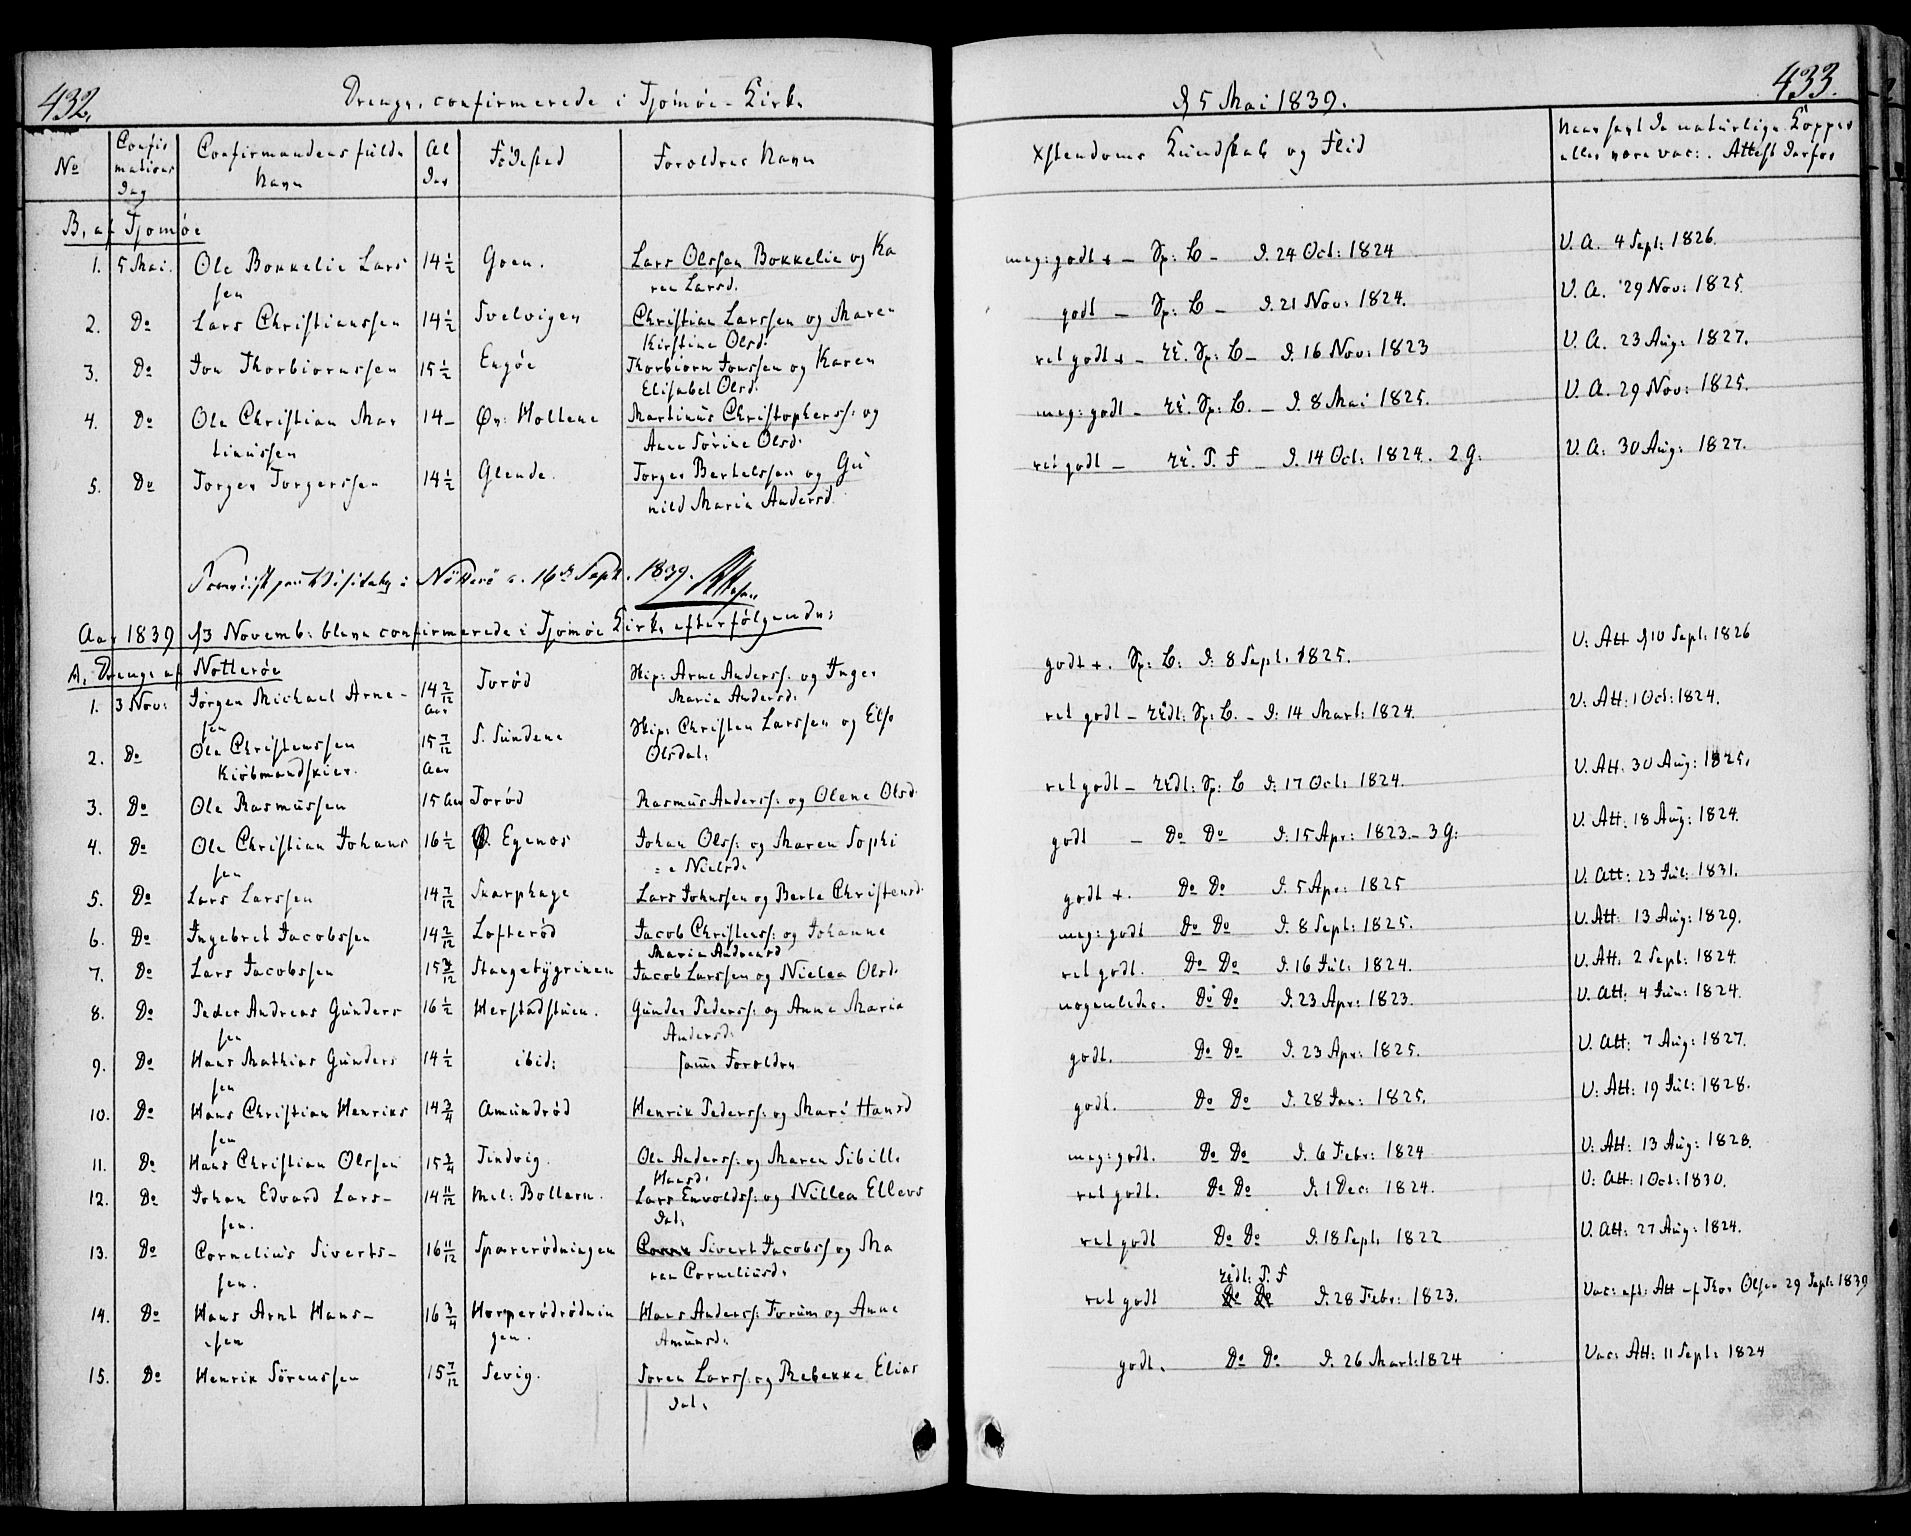 432.
Drenge, confirmerede i Tjømøe-Kirke
№
Confir
mations
Dag
Confirmandens fulde
Navn
Al
der
Fødested
Foreldres Navn
B, af Tjømøe
1. 5 Mai. Ole Bokkelie Lars 14½ Goen. Lars Olssen Bokkelie og Ka
sen ren Larsd.
2. Do Lars Christianssen 14½ Svelvigen Christian Larssen og Maren
Kirstine Olsd.
3. Do Jon Thorbiørnssen 15½ Engøe Thorbiørn Jonssen og Karen
Elisabet Olsd.
4. Do Ole Christian Mar 14 – Øv: Holtene Martinus Christophers: og
tinussen Anne Sørine Olsd.
5. Do Jørger Jørgerssen 14½ Glende. Jørger Bertelssen og Gu
nild Maria Andersd.
i Nøtterø d. 16de Sept. 1839.
Aar 1839 d 3 Novemb: bleve confirmerede i Tjømøe Kirke efterfølgende:
A, Drenge af Nøtterøe
1. 3 Nov: Jørgen Michael Arne- 14 2/12 Aar Torød Skip: Arne Anderss: og Inger
sen Maria Andersd.
2. Do Ole Christenssen 15 7/12 Aar S. Sundene Skip: Christen Larssen og Else
Kiøbmandskier. Olsdat.
3. Do Ole Rasmussen 15 Aar Torød Rasmus Anderss: og Olene Olsd.
4. Do Ole Christian Johans 16½ Ø. Egenes Johan Olss: og Maren Sophi
sen =e Nielsd.
5. Do Lars Larssen 14 7/12 Skarphage Lars Johnssen og Berte Christensd.
6. Do Ingebret Jacobssen 14 2/12 Lofterød Jacob Christens: og Johanne
Maria Andreasd
7. Do Lars Jacobssen 15 3/12 Stangebygrinen Jacob Larssen og Nielea Olsd.
8. Do Peder Andreas Gunders 16½ Herstadstuen. Gunder Peders: og Anne Maria
sen Andersd.
9. Do Hans Mathias Gunders 14½ ibid: samme Foreldre
sen
10. Do Hans Christian Henriks 14¾ Amundrød Henrik Peders: og Mari Hansd
sen
11. Do Hans Christian Olssen 15¾ Tindvig. Ole Anderss: og Maren Sibille
Hansd.
12. Do Johan Edvard Lars- 14 11/12 Mel: Bollærn. Lars Envolds: og Nillea Ellevs
sen. dat.
13. Do Cornelius Siverts- 16 11/12 Sparerødningen Sivert Jacobs: og Ma
sen. ren Corneliusd.
14. Do Hans Arnt Hans- 16¾ Horperødrødnin Hans Anderss: Forum og Anne
sen gen. Amunsd.
15. Do Henrik Sørenssen 15 7/12 Sevig. Søren Larss: og Rebekke Elias
dat.
433.
d 5 Mai 1839.
Xstendoms Kundskab og Flid
Naar havt de naturlige Kopper
eller være vac:. Attest derfor
meg: godt + – Sp: L – d. 24 Oct: 1824 V. A. 4 Sept: 1826.
godt – Sp: L – d. 21 Nov: 1824. V. A. 29 Nov: 1825
ret godt + – Sp: L – d. 16 Nov: 1823 V. A. 23 Aug: 1827.
meg: godt – Sp: L. – d. 8 Mai 1825. V. A. 29 Nov: 1825.
ret godt – T. F – d. 14 Oct: 1824. 2 G: V. A: 30 Aug: 1827.
godt +. Sp: L: d. 8 Sept. 1825. V: Att d 10 Sept: 1826
ret godt – Sp: L. – d. 14 Mart: 1824. V: Att: 1 Oct: 1824.
ret godt – Sp: L d. 17 Oct: 1824. V. Att. 30 Aug: 1825.
godt – Do Do d. 15 Apr: 1823 – 3 G: V. Att. 18 Aug: 1824.
godt +. Do Do d. 5 Apr: 1825 V: Att: 23 Jul: 1831.
meg: godt Do Do d. 8 Sept: 1825. V: Att: 13 Aug: 1829.
ret godt. Do Do d. 16 Jul: 1824. V: Att: 2 Sept: 1824
nogenledes. Do Do d. 23 Apr: 1823. V. Att: 4 Jun: 1824.
godt. Do Do d. 23 Apr: 1825. V. Att: 7 Aug: 1827.
godt. Do Do d. 28 Jan: 1825. V: Att: 19 Jul: 1828.
meg: godt. Do Do d. 6 Febr: 1824 V: Att: 13 Aug: 1828.
ret godt. Do Do d. 1 Dec: 1824. V: Att: 1 Oct: 1830.
ret godt Do Do d. 18 Sept. 1822 V. Att: 27 Aug: 1824.
T. F
ret godt Do Do d. 28 Febr: 1823. Vac: eft: Att af Thor Olsen 29 Sept: 1839
godt. Do Do d. 26 Mart: 1824 Vac: Att: 11 Sept: 1824